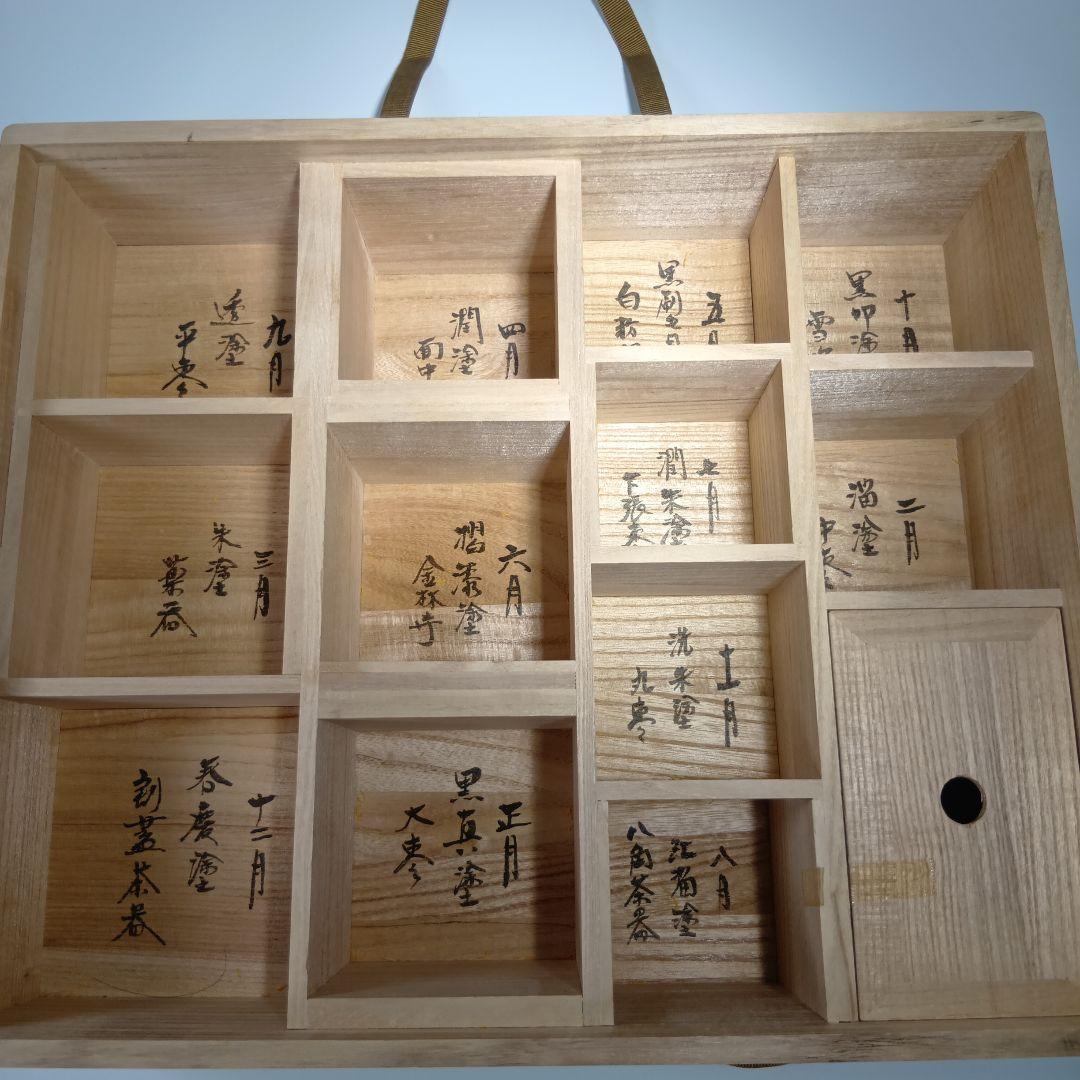 九月
透塗
平棗
四月
潤塗
面中
五月
黒刷毛目
白粉
十月
黒叩塗
雪吹
三月
朱塗
薬器
六月
摺漆塗
金林寺
七月
潤朱塗
下張棗
二月
溜塗
中棗
十一月
洗朱塗
丸棗
十二月
春慶塗
割蓋茶器
正月
黒真塗
大棗
八月
八角茶器